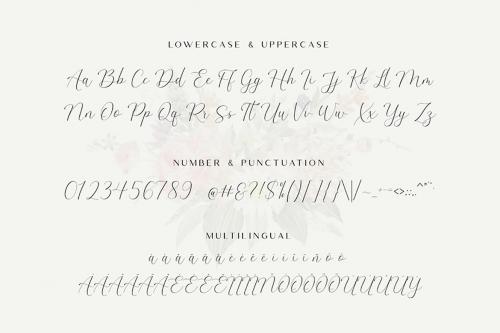 LOWERCASE & UPPERCASE
Aa Bb Cc Dd Ee Ff Gg Hh Ii Jj Kk Ll Mm
Nn Oo Pp Qq Rr Ss Tt Uu Vv Ww Xx Yy Zz
NUMBER & PUNCTUATION
0123456789 @#&?!$%()[]//\|~_÷=<>:;,.^*"'
MULTILINGUAL